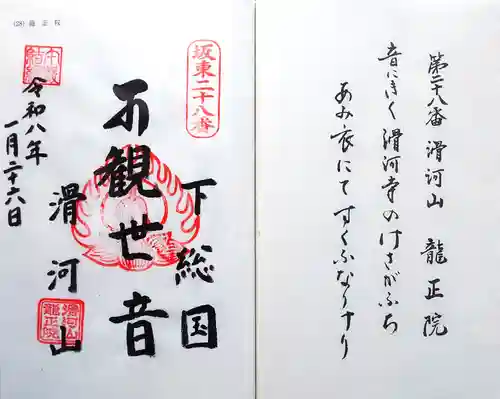 第二十八番 滑河山 龍正院
音にきく滑河寺のけさがふち
あみ衣にてすくふなりけり
(28) 龍正院
坂東二十八番
下総国
観世音
滑河山
滑河山
龍正院
令和八年
一月二十六日